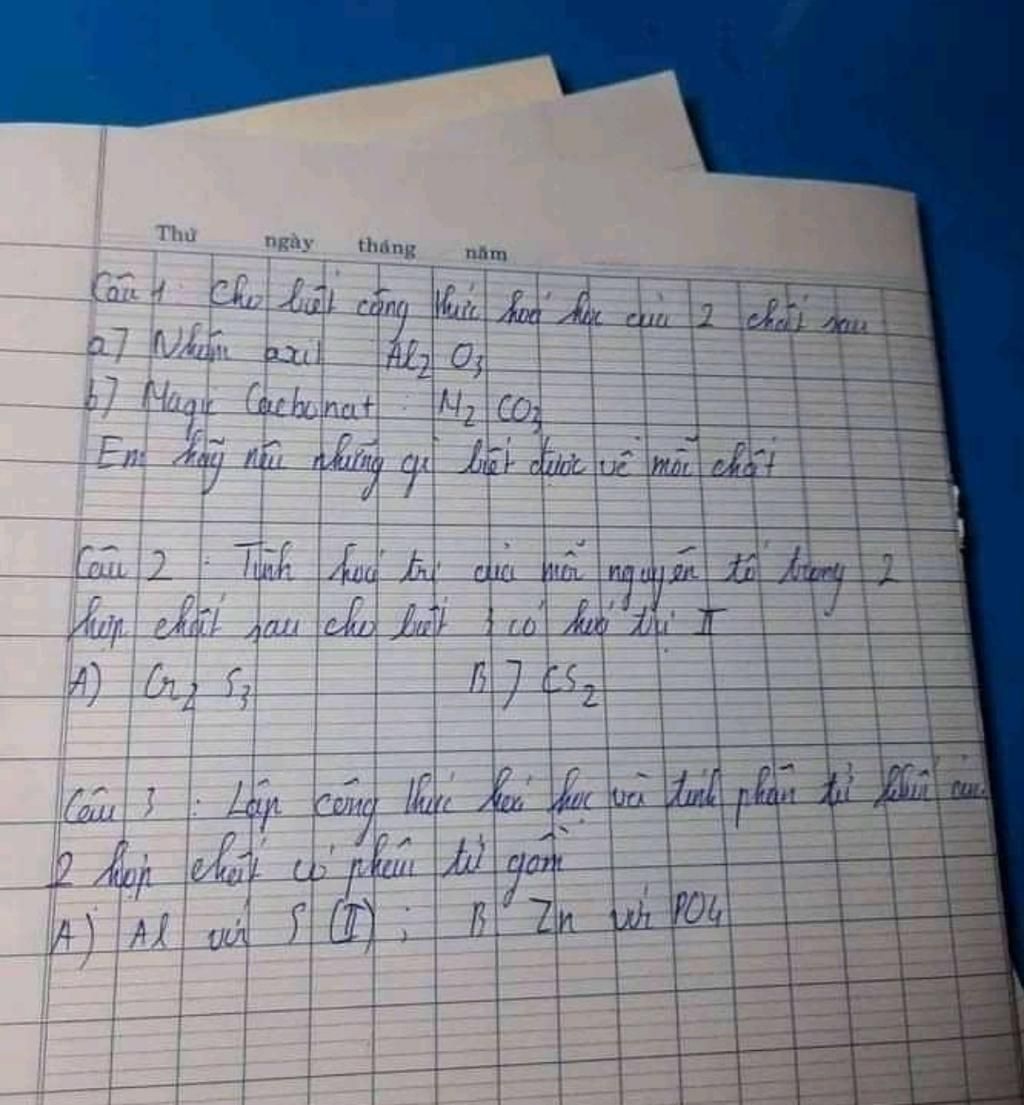 Thứ ngày tháng năm
Câu 1 : Cho biết công thức hoá học của 2 chất sau
a) Nhôm axit Al₂ O₃
b) Magie Cacbonat : M₂ CO₃
Em hãy nêu những gì biết được về mỗi chất
Câu 2 : Tính hoá trị của mỗi nguyên tố trong 2
hợp chất sau cho biết S có hoá trị II
A) Cr₂ S₃ B) CS₂
Câu 3 : Lập công thức hoá học và tính phân tử khối của
2 hợp chất có phân tử gồm
A) Al với S (II) ; B Zn với PO₄